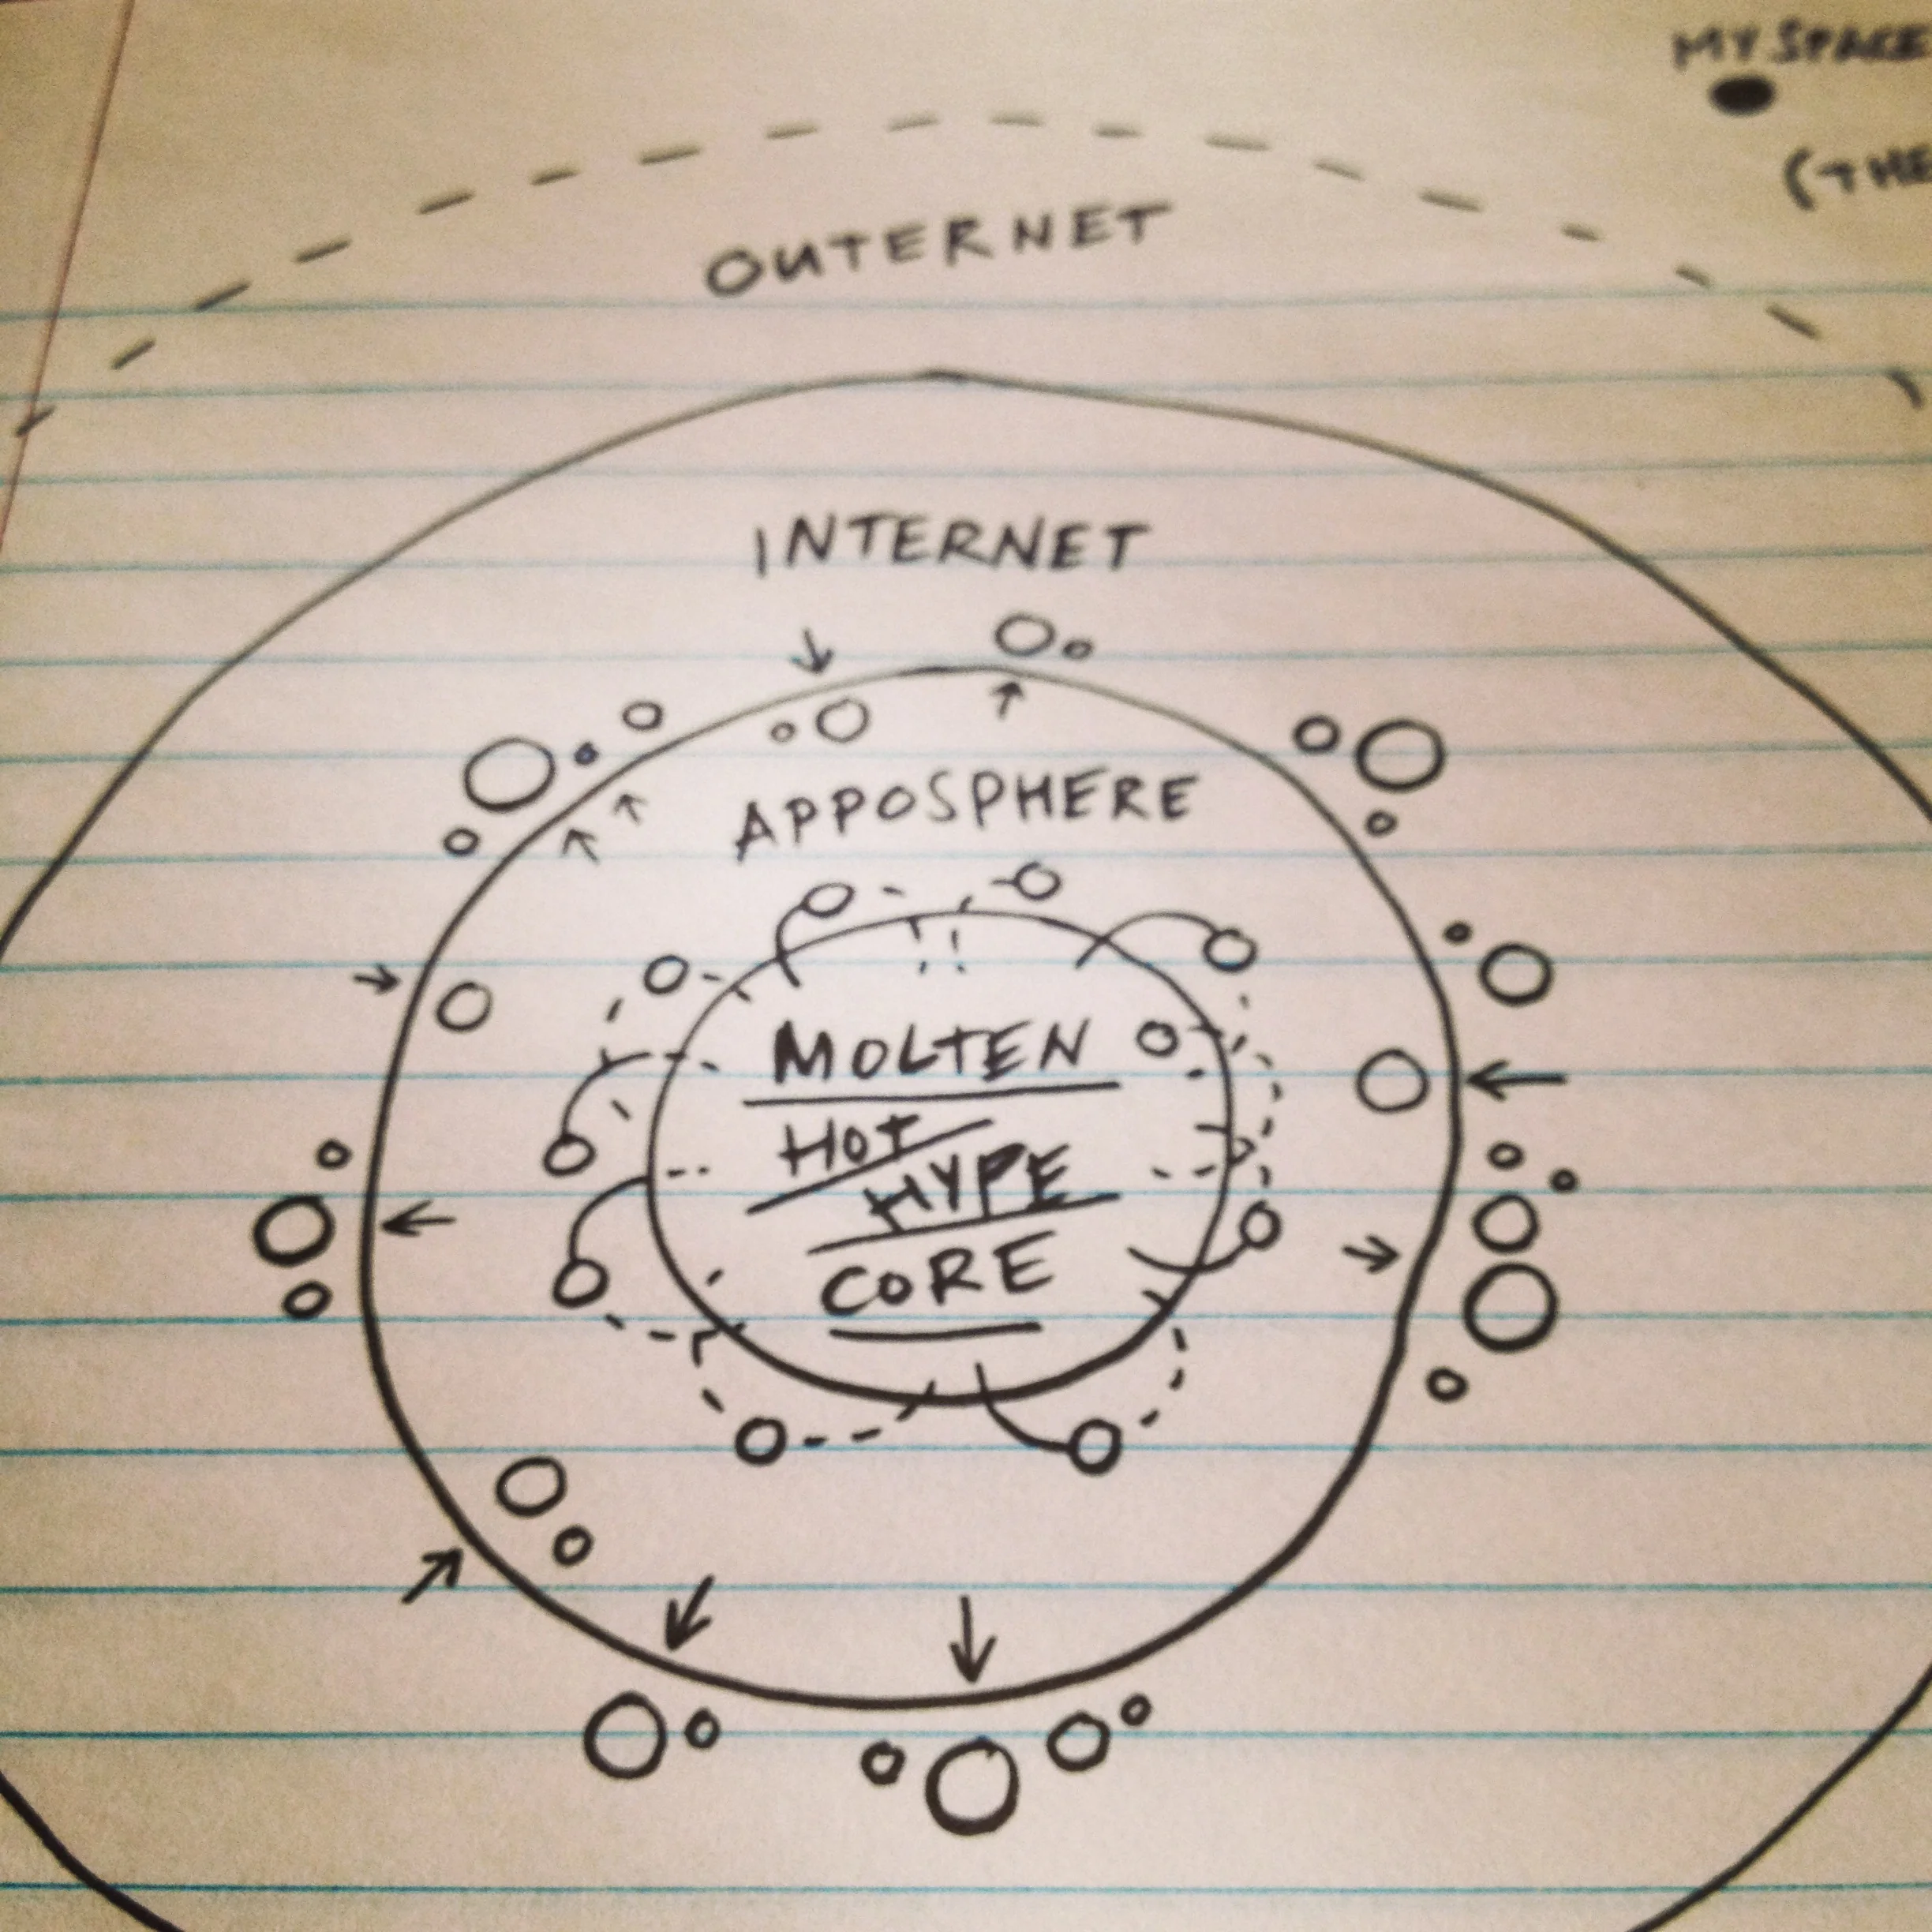 MYSPACE
(THE
OUTERNET
INTERNET
APPOSPHERE
MOLTEN
HOT
HYPE
CORE